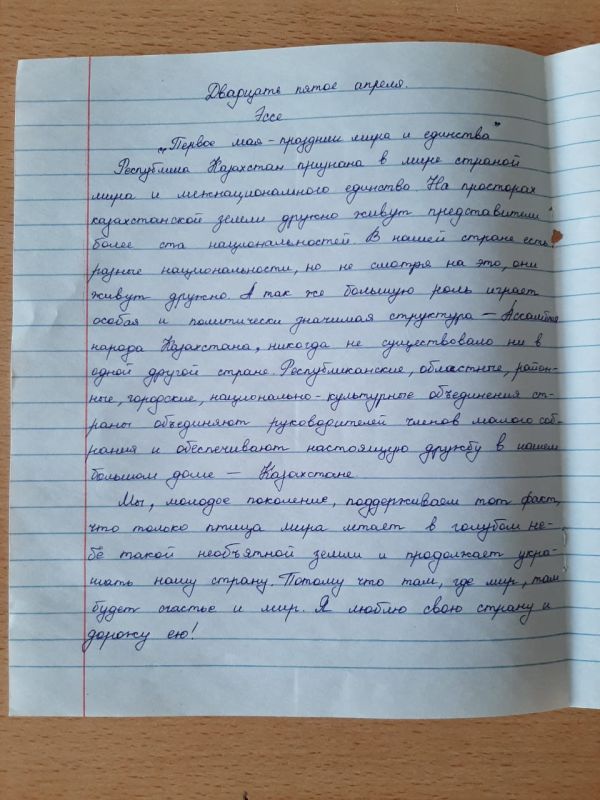 Двадцать пятое апреля.
Эссе
„Первое мая - праздник мира и единства"
Республика Казахстан признана в мире страной
мира и межнационального единства. На просторах
казахстанской земли дружно живут представители
более ста национальностей. В нашей стране есть
разные национальности, но не смотря на это, они
живут дружно. А так же большую роль играет
особая и политически значимая структура – Ассамблея
народа Казахстана, никогда не существовало ни в
одной другой стране. Республиканские, областные, район-
ные, городские, национально-культурные объединения ст-
раны объединяют руководителей членов малого соб-
рания и обеспечивают настоящую дружбу в нашем
большом доме – Казахстане.
Мы, молодое поколение, поддерживаем тот факт,
что только птица мира летает в голубом не-
бе такой необъятной земли и продолжает укра-
шать нашу страну. Потому что там, где мир, там
будет счастье и мир. Я люблю свою страну и
дорожу ею!